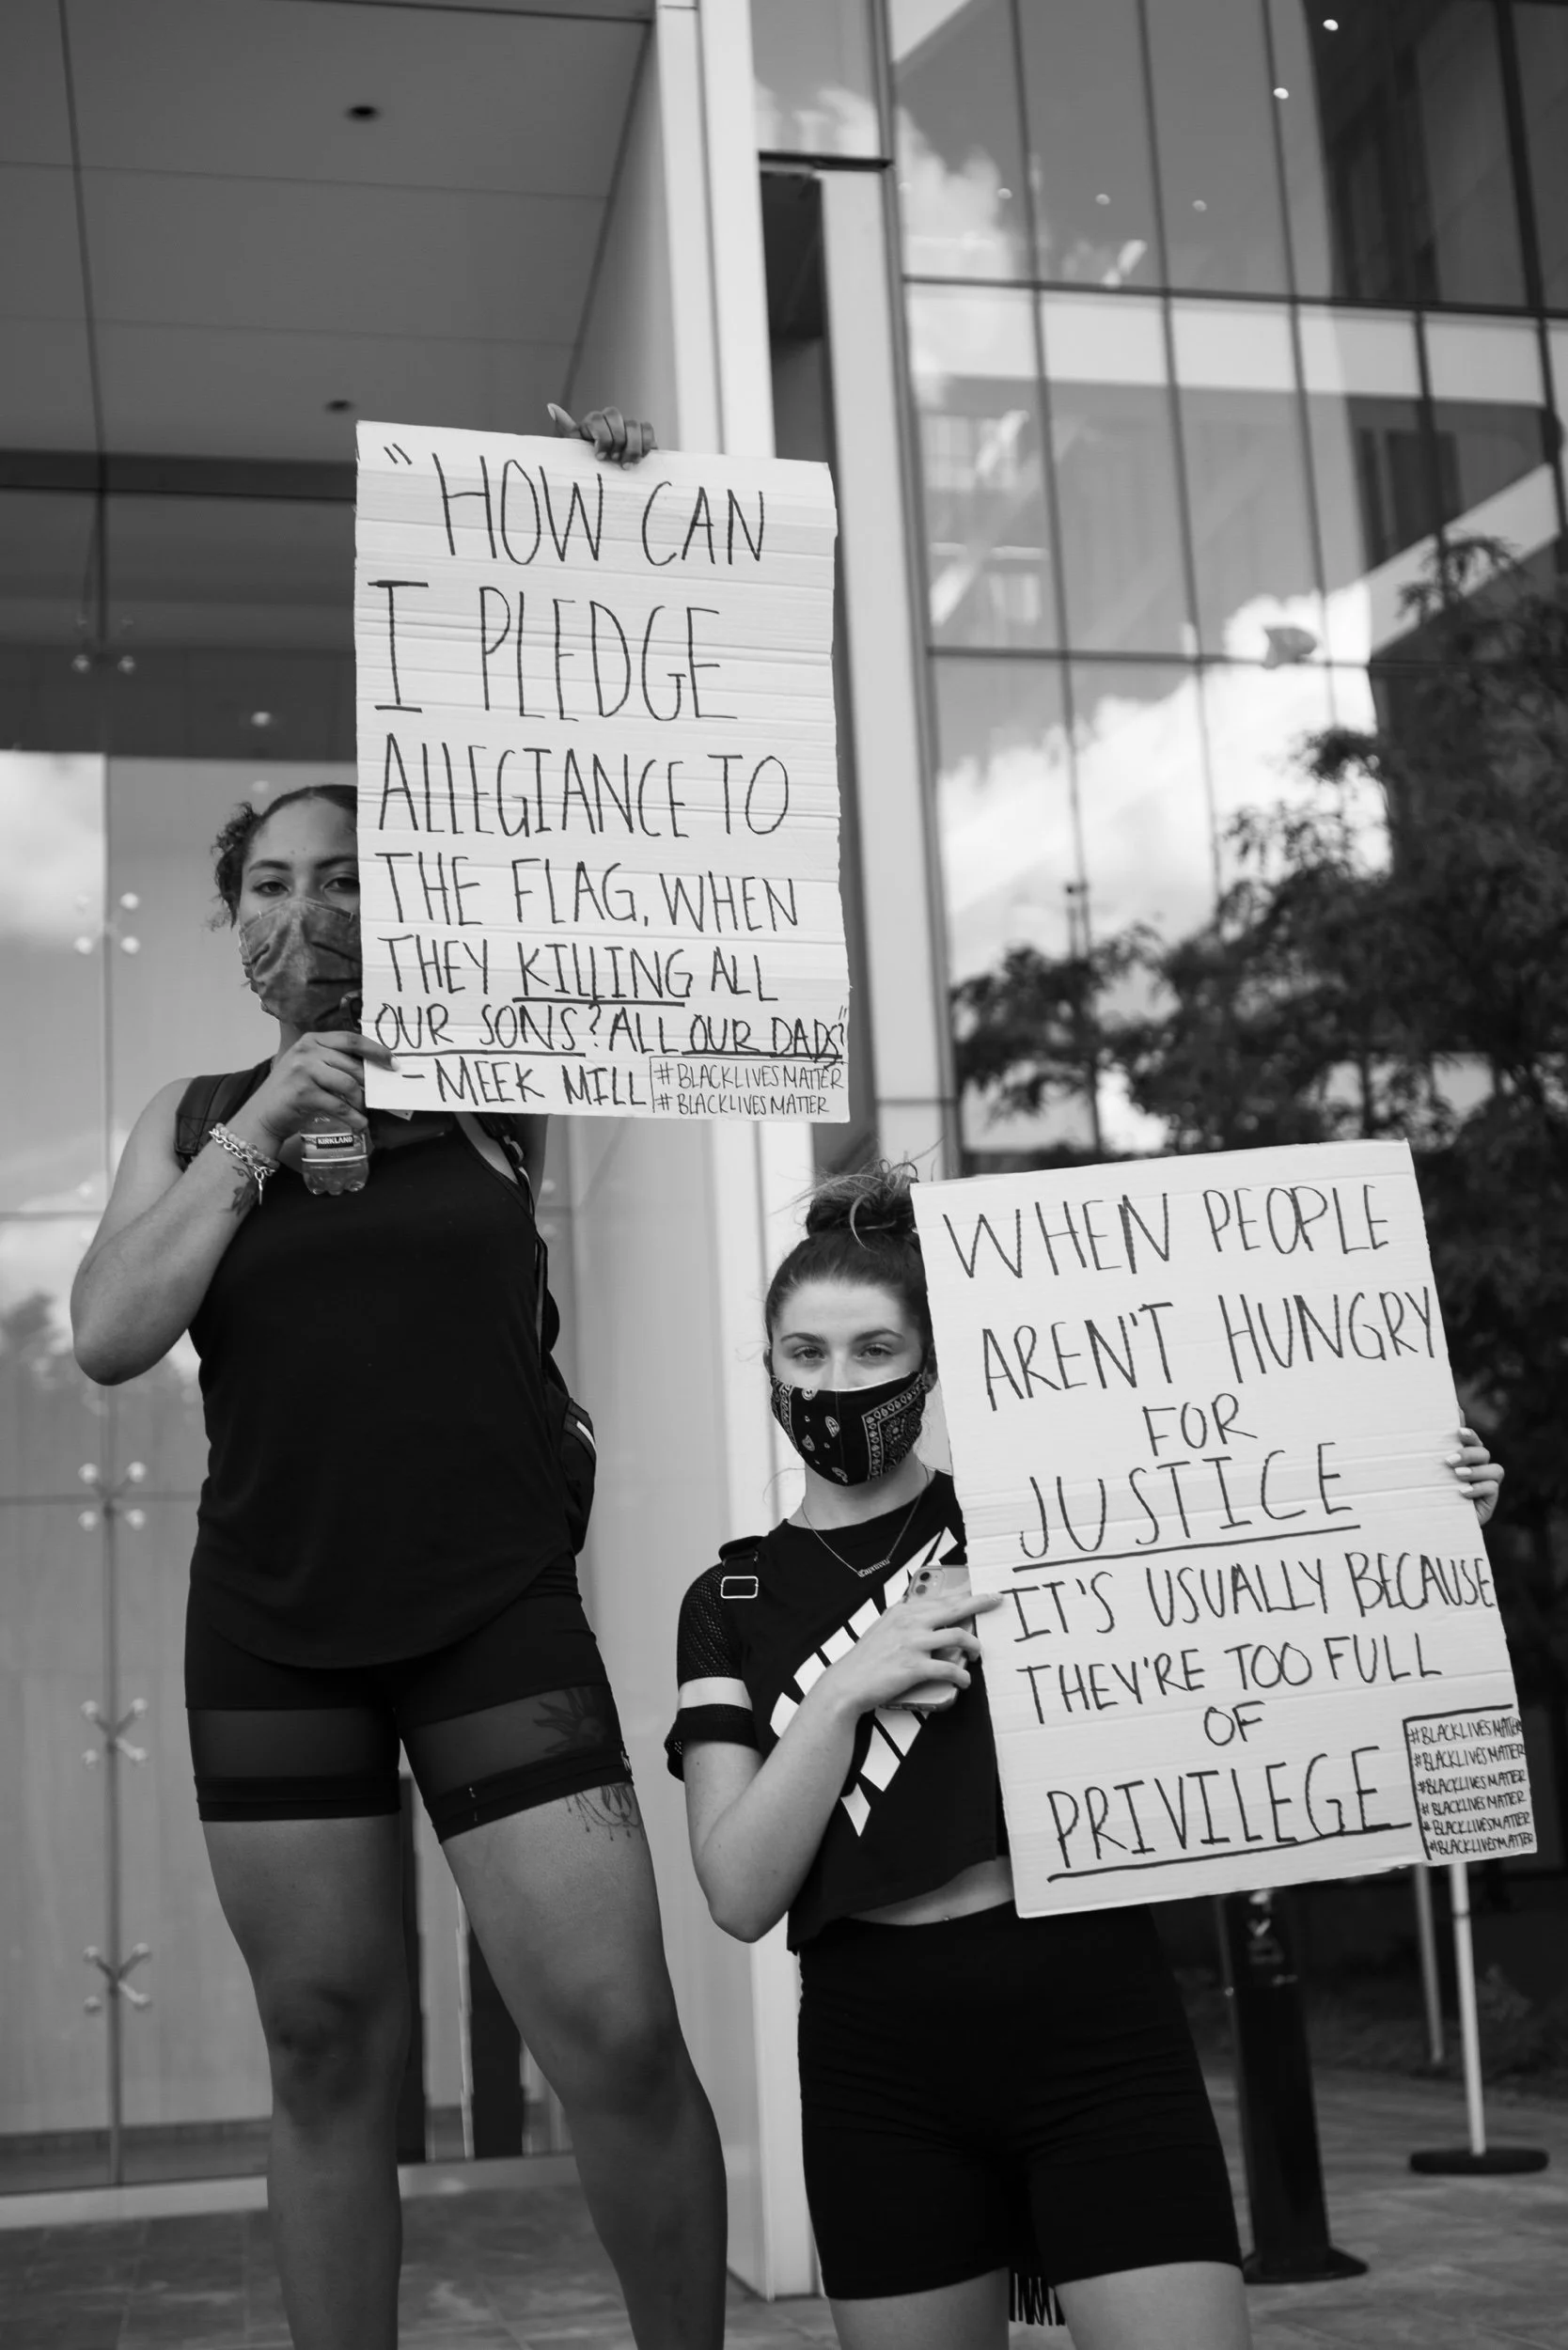 "HOW CAN
I PLEDGE
ALLEGIANCE TO
THE FLAG, WHEN
THEY KILLING ALL
OUR SONS? ALL OUR DADS?"
- MEEK MILL
#BLACKLIVESMATTER
#BLACKLIVESMATTER
KIRKLAND
WHEN PEOPLE
AREN'T HUNGRY
FOR
JUSTICE
IT'S USUALLY BECAUSE
THEY'RE TOO FULL
OF
PRIVILEGE
#BLACKLIVESMATTER
#BLACKLIVESMATTER
#BLACKLIVESMATTER
#BLACKLIVESMATTER
#BLACKLIVESMATTER
#BLACKLIVESMATTER